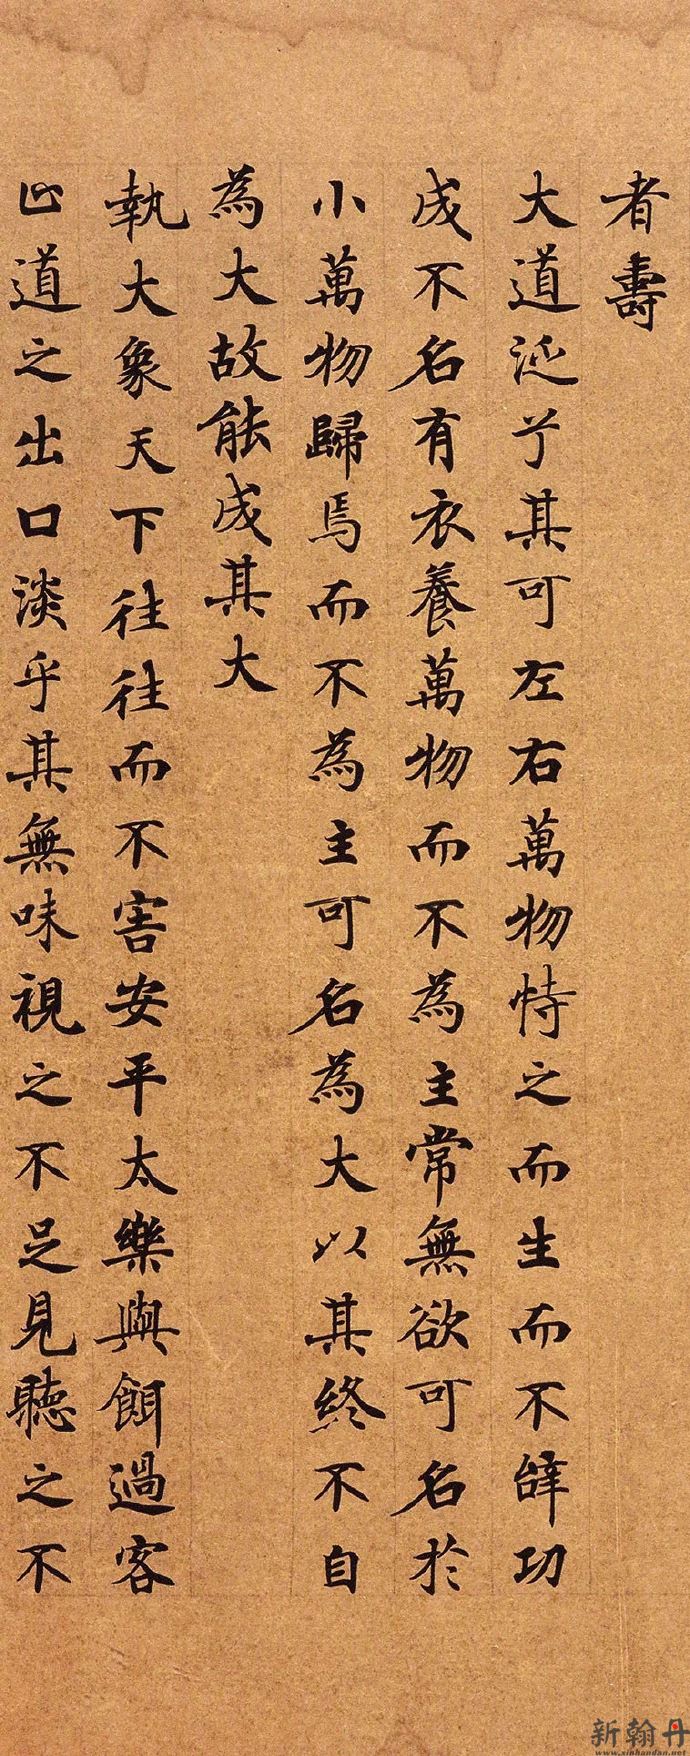 者壽
大道泛兮其可左右萬物恃之而生而不辝功
成不名有衣養萬物而不為主常無欲可名於
小萬物歸焉而不為主可名為大以其終不自
為大故能成其大
執大象天下往往而不害安平太樂與餌過客
止道之出口淡乎其無味視之不足見聽之不
新翰丹
www.xinhandan.net